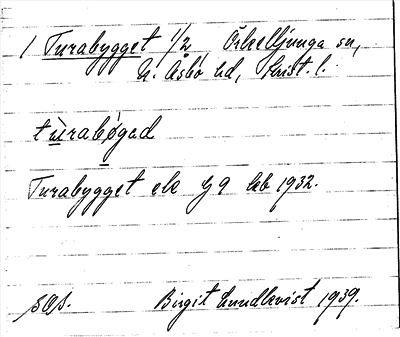 1 Turabygget 1/2, Örkelljunga sn,
N. Åsbo hd, Krist. l.
tùrabýgad
Turabygget ek bg 9 kb 1932.
SOS. Birgit Lundkvist 1939.